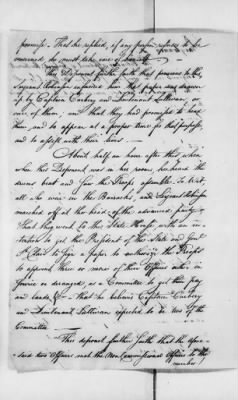 promise. That he replied, if any person refuses to be
measured, he must take care of himself.
This Deponent further saith that previous to this,
Serjeant Robinson informed him that paper was drawn
up by Captain Carbery and Lieutenant Sullivan, or
one of them; and that they had promised to
them, and to appear at a proper time for that purpose,
and to assist with their
About half an hour after this, when
this Deponent was in her room, he heard the
drums beat and saw the Troops assemble. In short,
all who were in the Barracks, and Serjeant Robinson
marched off at the head of the advanced party.
That they went to the State House with an in-
tention to get the President of the State and Genl
St. Clair to sign a paper to authorize the Troops
to appoint three or more of their Officers either in
Service or deranged, as a Committee to get their pay
and lands, — that he believes Captain Carbery
and Lieutenant Sullivan expected to be two of the
Committee —
This deponent further saith that the afore-
said two Officers met the Non Commissioned Officers to the
number